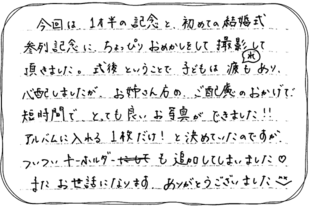 今回は、1才半の記念と、初めての結婚式
参列記念に、ちょっぴりおめかしをして撮影して
頂きました。式後ということで、子どもは疲れもあり、
心配しましたが、お姉さん方の、ご配慮のおかげで、
短時間で、とても良いお写真ができました!!
アルバムに入れる1枚だけ!と決めていたのですが、
ついついキーホルダーも追加してしまいました♡
またお世話になります。ありがとうございました